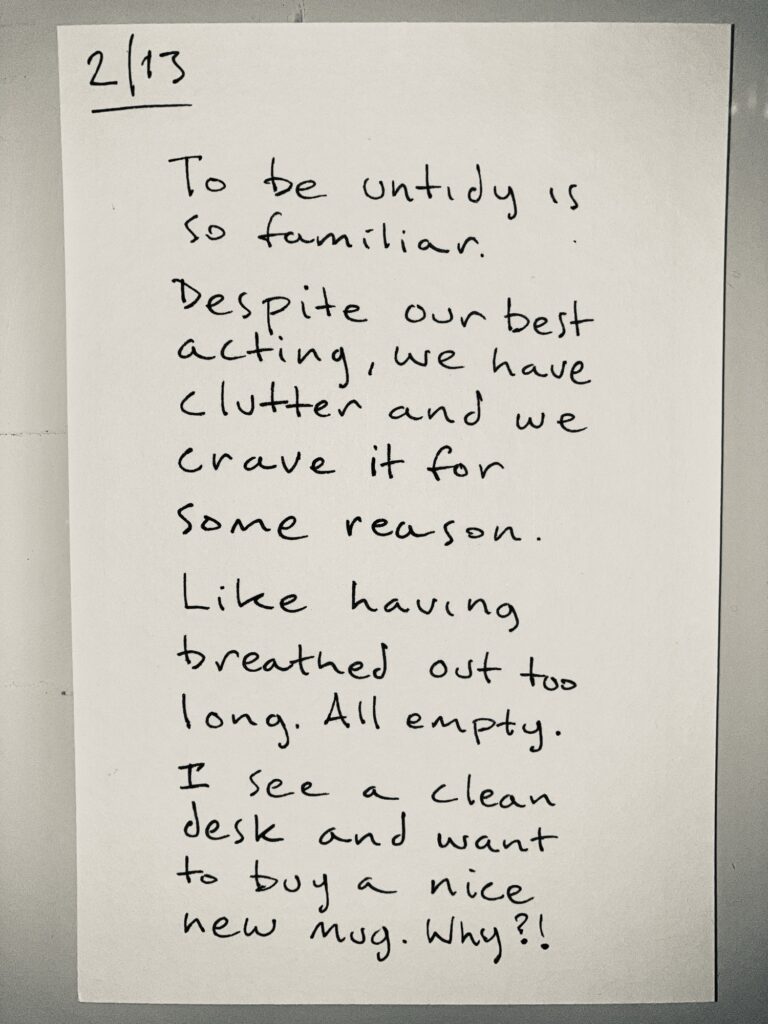 2/13
To be untidy is
so familiar.
Despite our best
acting, we have
clutter and we
crave it for
some reason.
Like having
breathed out too
long. All empty.
I see a clean
desk and want
to buy a nice
new mug. Why?!